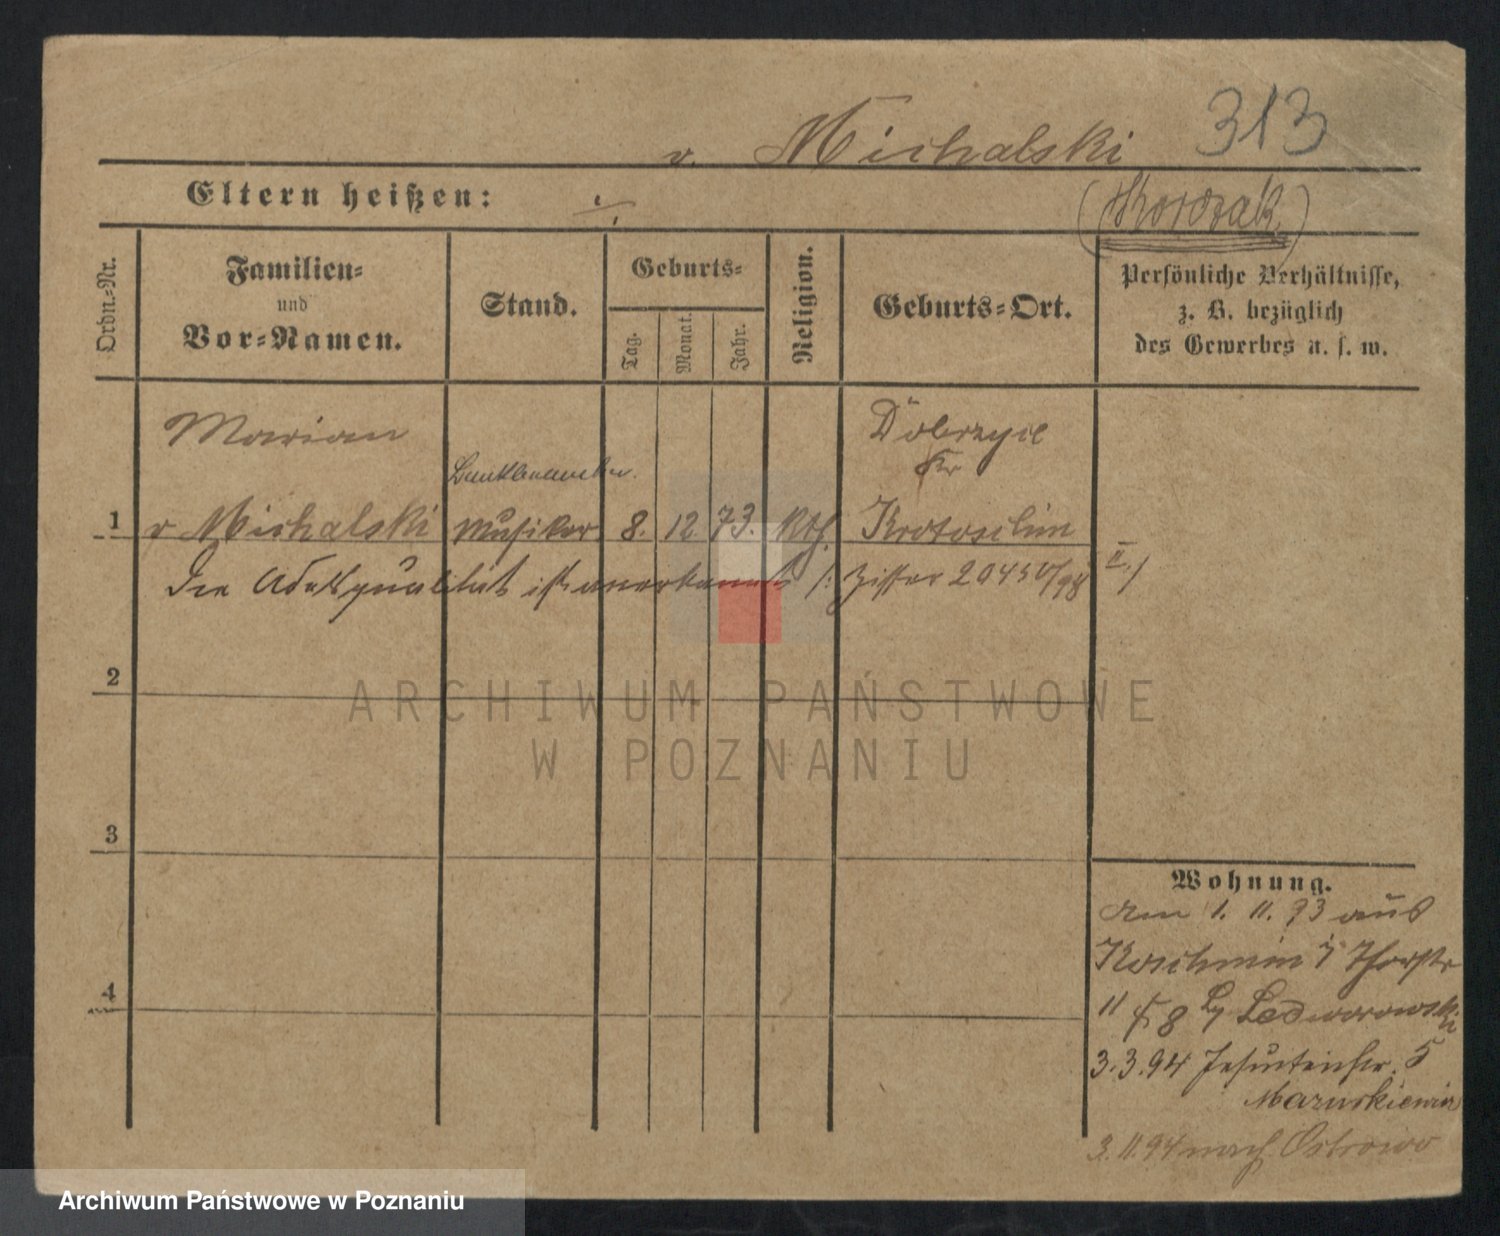 313
v. Michalski
Eltern heißen: ./.
(Korczak)
Ordn.-Nr.
Familien-
und
Vor-Namen.
Stand.
Geburts-
Tag.
Monat.
Jahr.
Religion.
Geburts-Ort.
Persönliche Verhältnisse,
z. B. bezüglich
des Gewerbes u. s. w.
Marian
Dobrzyce
Bankbeamter
Kr
1 v Michalski Musiker 8. 12. 73. kth. Krotoschin
Die Adelsqualität ist anerkannt /: Ziffer 2045 V/98 II :/
2
ARCHIWUM PAŃSTWOWE
W POZNANIU
3
Wohnung.
Am 1. 11. 93 aus
Koschmin
4
11 8 Ledworowski
3.3.94 Jesuitenstr. 5
3. 11. 94 nach Ostrowo
Archiwum Państwowe w Poznaniu